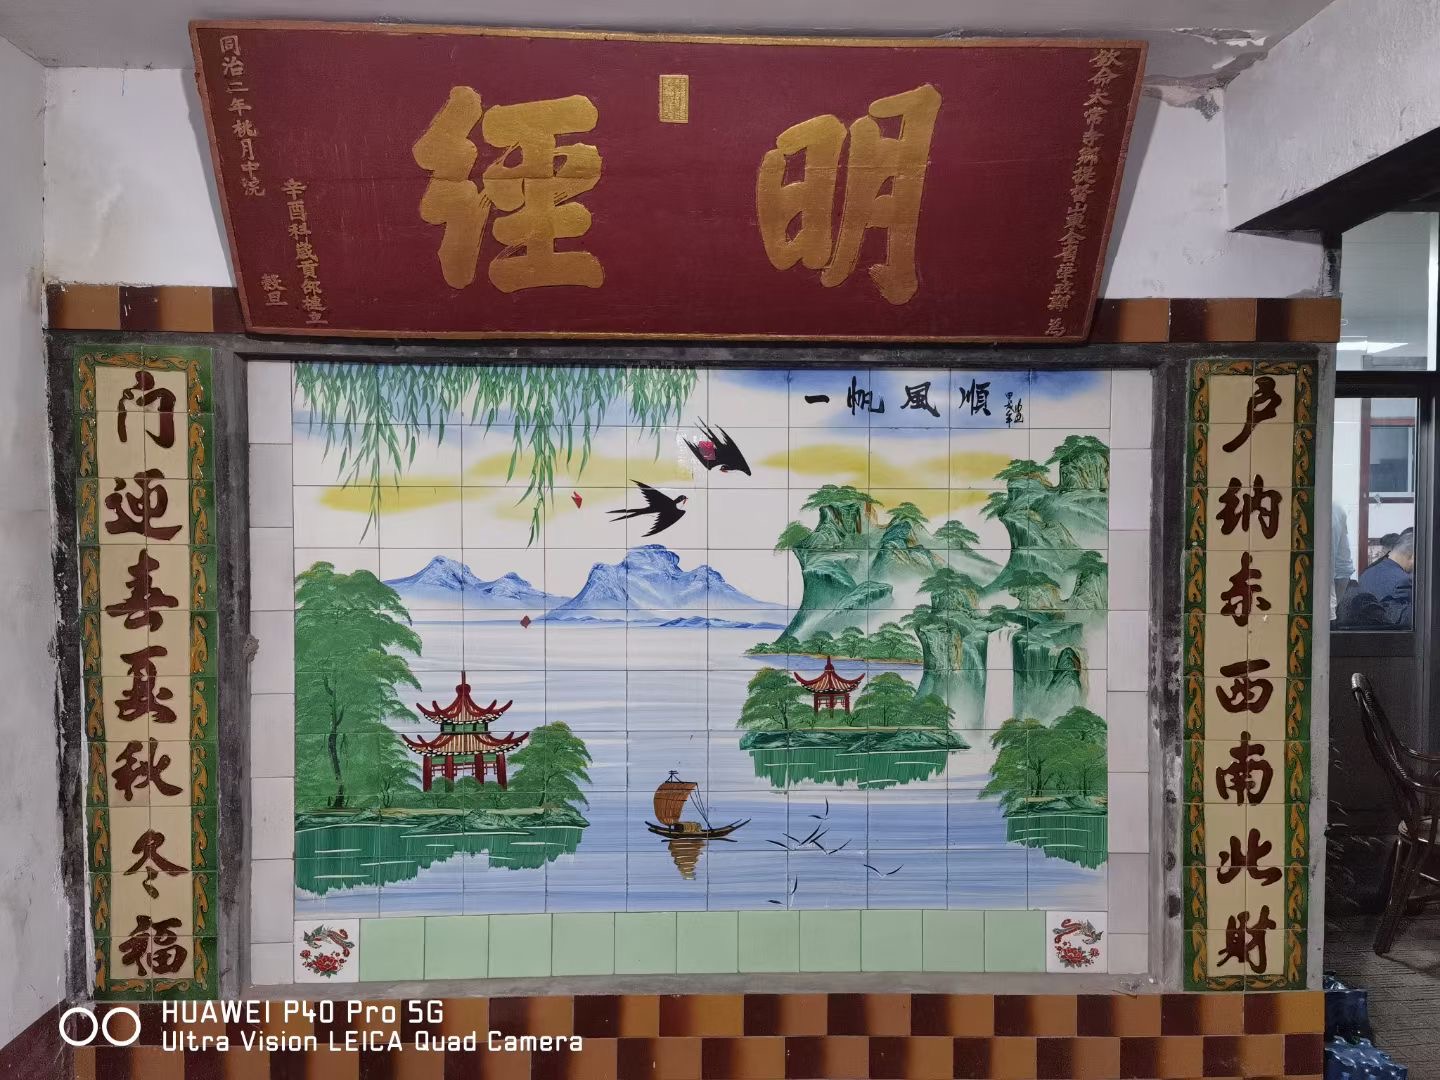 欽命太常寺卿提督山東全省學政鄭 為
明經
辛酉科歲貢邵植立
穀旦
同治二年桃月中浣
一帆風順
户纳东西南北财
门迎春夏秋冬福
HUAWEI P40 Pro 5G
Ultra Vision LEICA Quad Camera